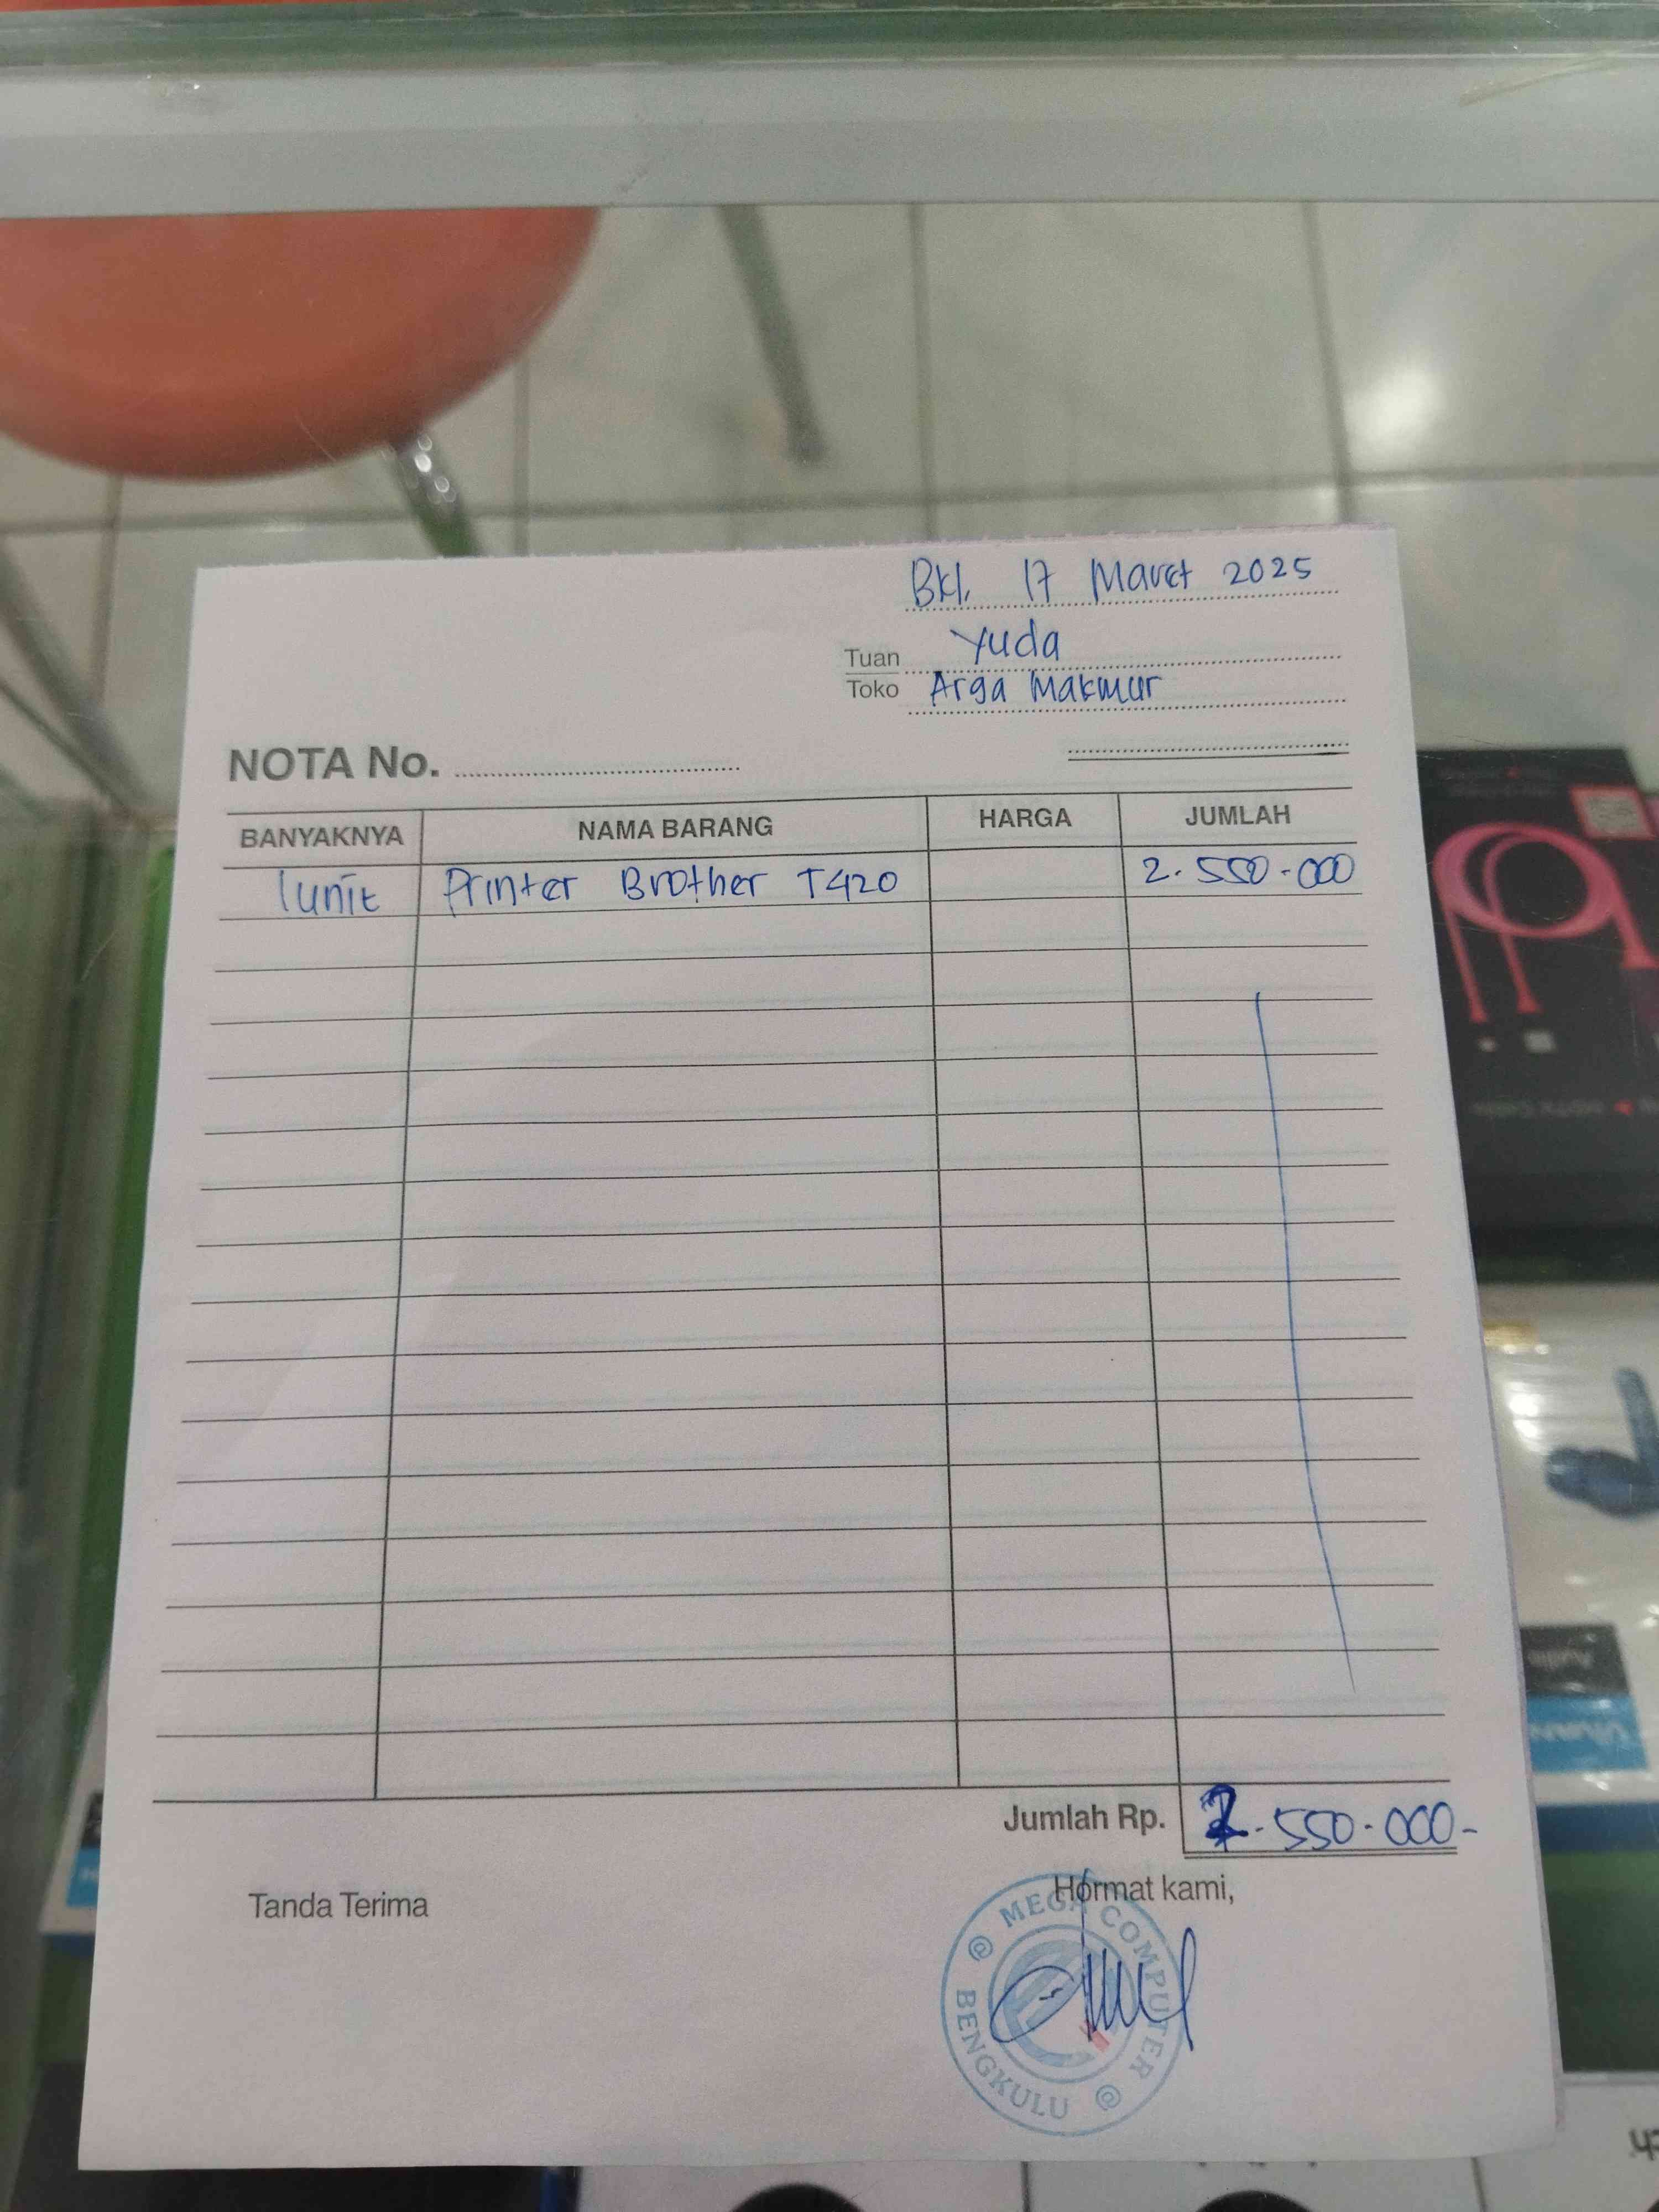 Bkl, 17 Maret 2025
Tuan Yuda
Toko Arga Makmur
NOTA No.
BANYAKNYA NAMA BARANG HARGA JUMLAH
1 unit Printer Brother T420 2.550.000
Jumlah Rp. 2.550.000-
Tanda Terima Hormat kami,
@ MEGA COMPUTER @
BENGKULU
Audio